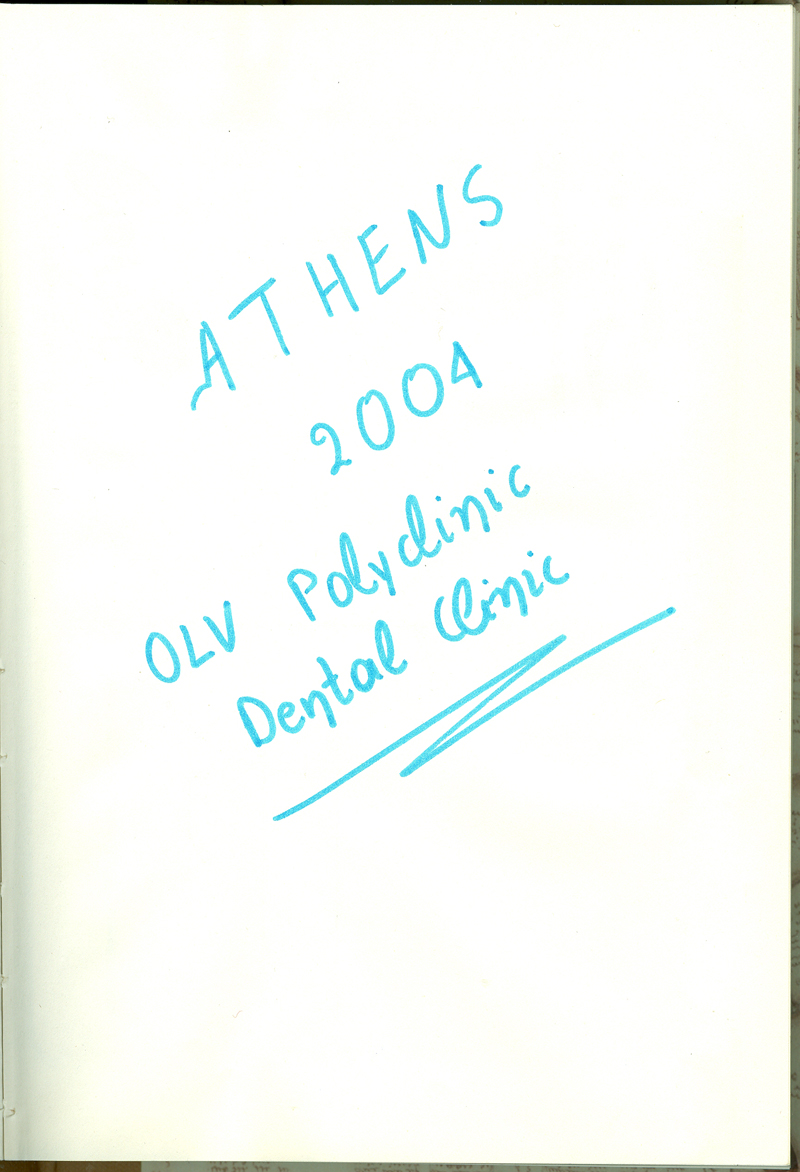 ATHENS
2004
OLV Polyclinic
Dental Clinic